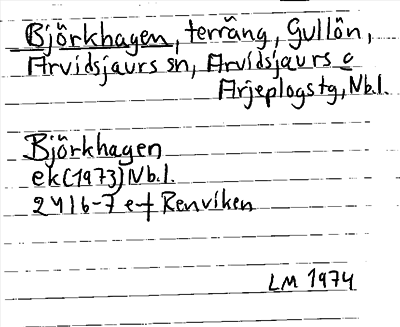 Björkhagen, terräng, Gullön,
Arvidsjaurs sn, Arvidsjaurs o
Arjeplogs tg, Nb.l.
Björkhagen
ek(1973) Nb.l.
24I6-7 e-f Renviken
LM 1974